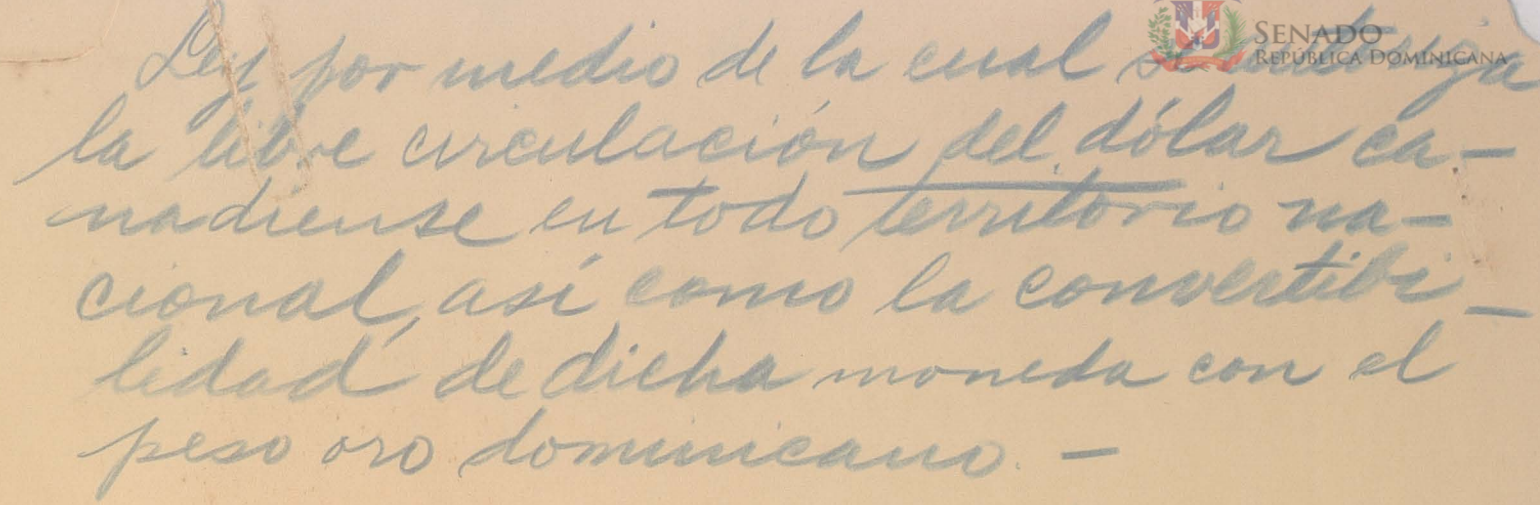 SENADO
REPÚBLICA DOMINICANA
Ley por medio de la cual se
la libre circulación del dólar ca-
nadiense en todo territorio na-
cional, así como la convertibi-
lidad de dicha moneda con el
peso oro dominicano. -